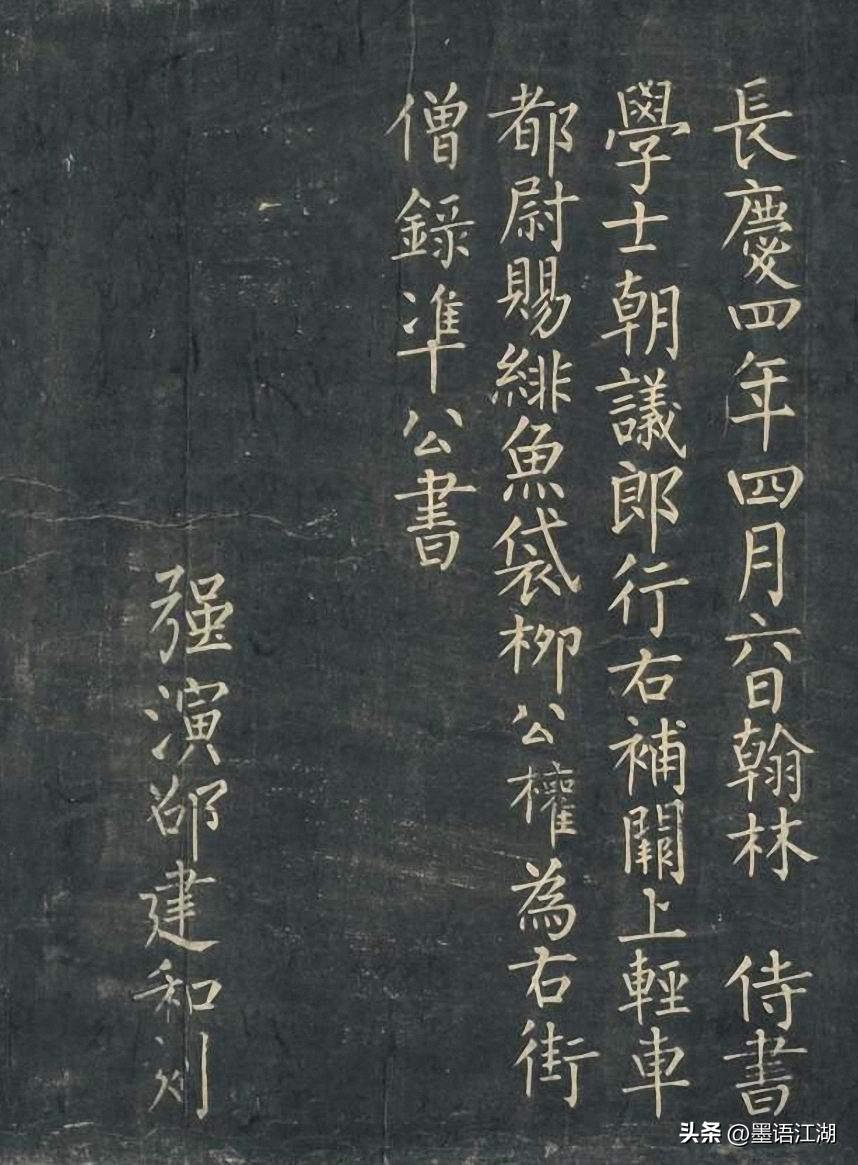 長慶四年四月六日翰林 侍書
學士朝議郎行右補闕上輕車
都尉賜緋魚袋柳公權為右街
僧錄準公書
强演邵建和刻
头条 @墨语江湖